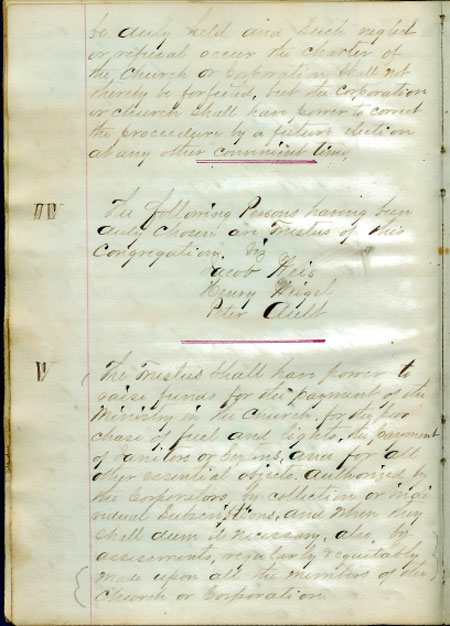 be duly held and Such neglect
or refusal occur the charter of
the Church or Corporation Shall not
thereby be forfeited, but the Corporation
or church shall have power to correct
the proceedure by a future election
at any other convinient time,
IV
The following Persons having been
duly Chosen as Trustus of this
Congregation. viz
Jacob
Henry Weigel
Peter
V
The Trustus Shall have power to
raise funds for the payment of the
Ministry in the Church, for the Pur
chase of fuel and lights, the payment
of Janitors or Sexins, and for all
other essential objects authorized by
the Corporators, by collection or indi
vidual Subscriptions, and when they
shall dum it necessary, also, by
assessments, regularly & equitably
made upon all the members of the
Church or Corporation